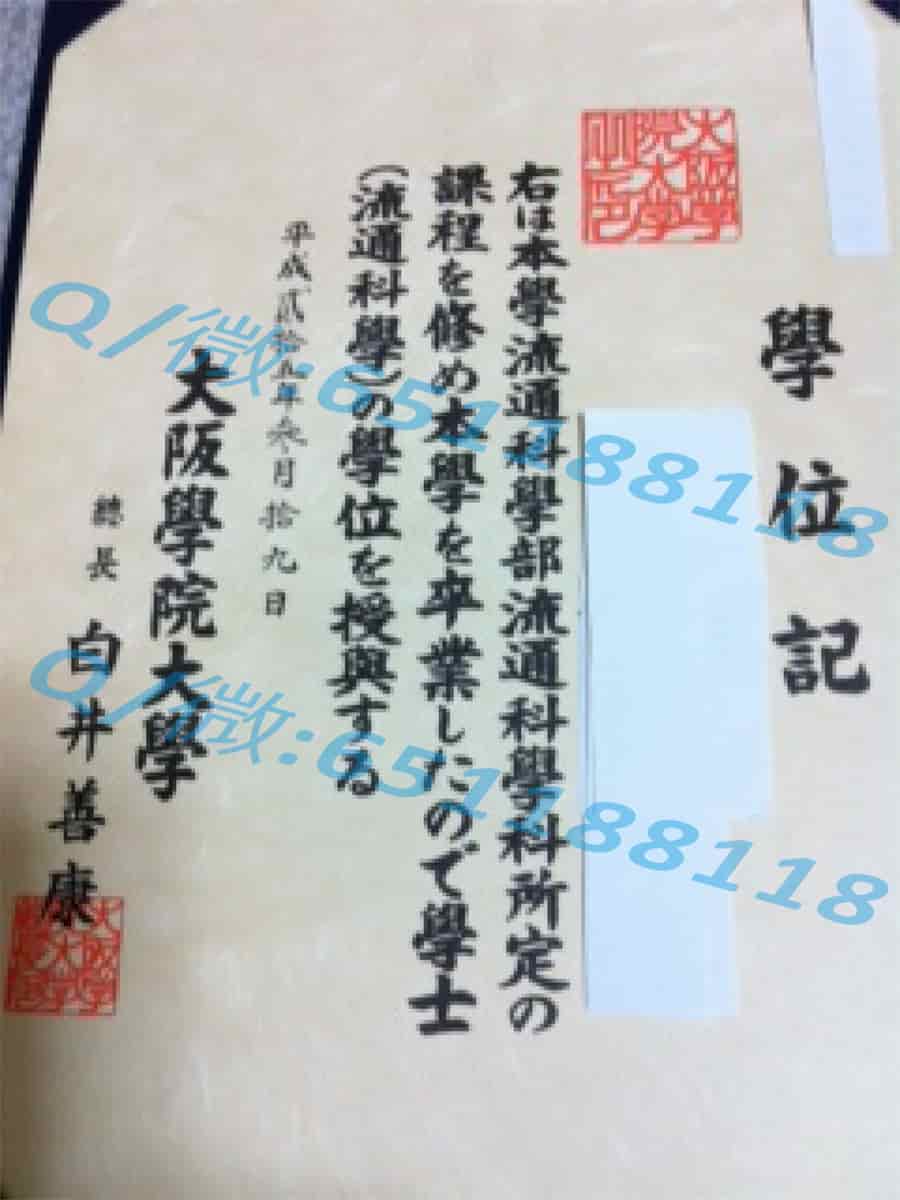 學位記
大阪學院大學
右は本學流通科學部流通科學科所定の
課程を修め本學を卒業したので學士
(流通科學)の學位を授與する
平成貳拾五年叄月拾九日
大阪學院大學
總長 白井善康
大阪學
大
Q/微:651188118
Q/微:651188118